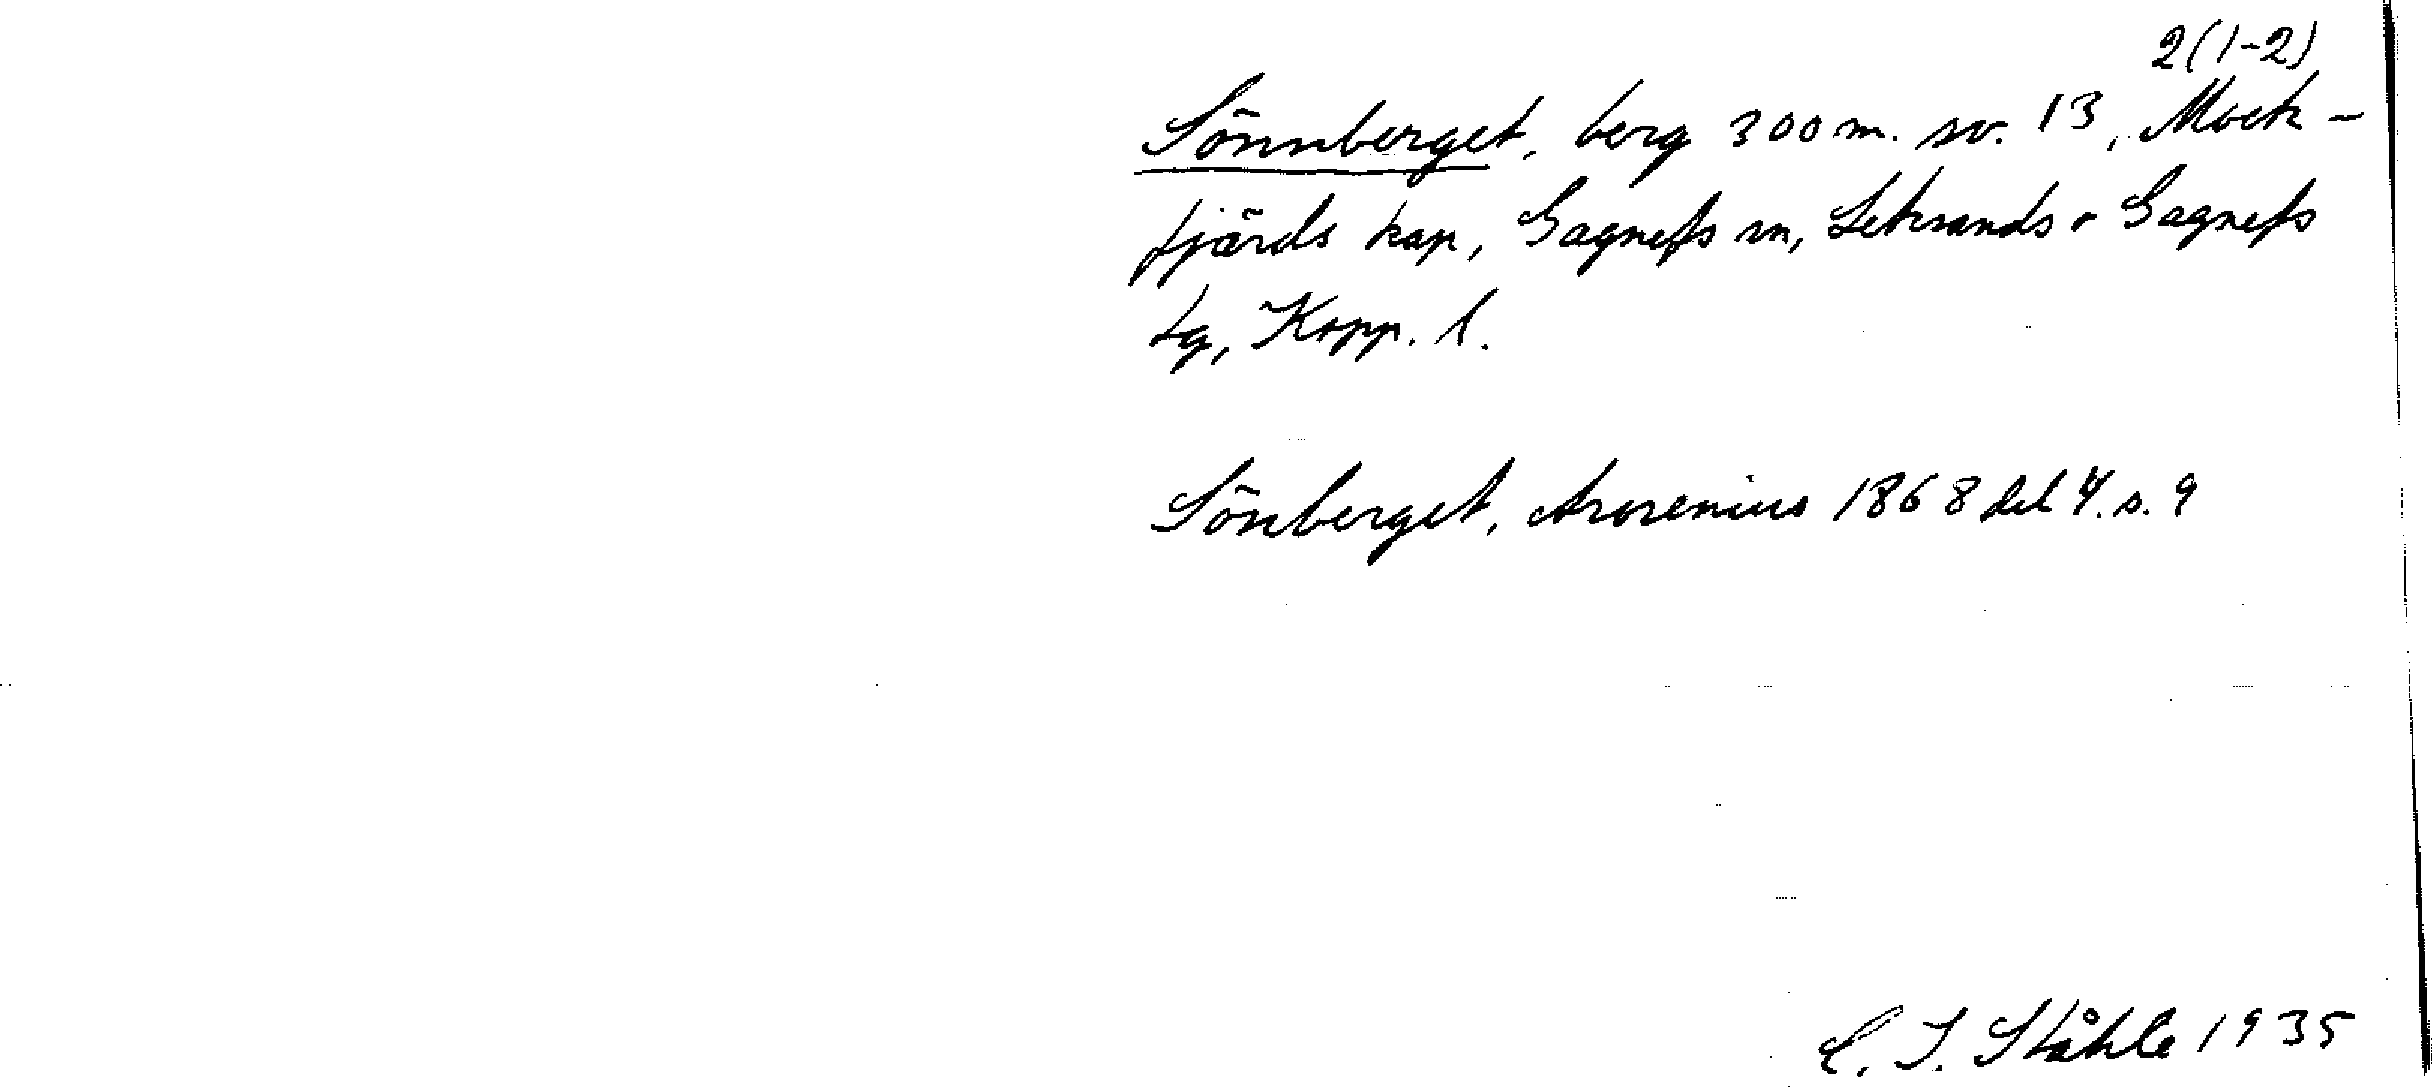 2(1-2)
Sönnberget, berg 300 m. sv. 13, Mock-
fjärds kap, Gagnefs sn, Leksands o Gagnefs
tg, Kopp. l.
Sönberget, Arosenius 1868 del 4. s. 9
C. I. Ståhle 1935